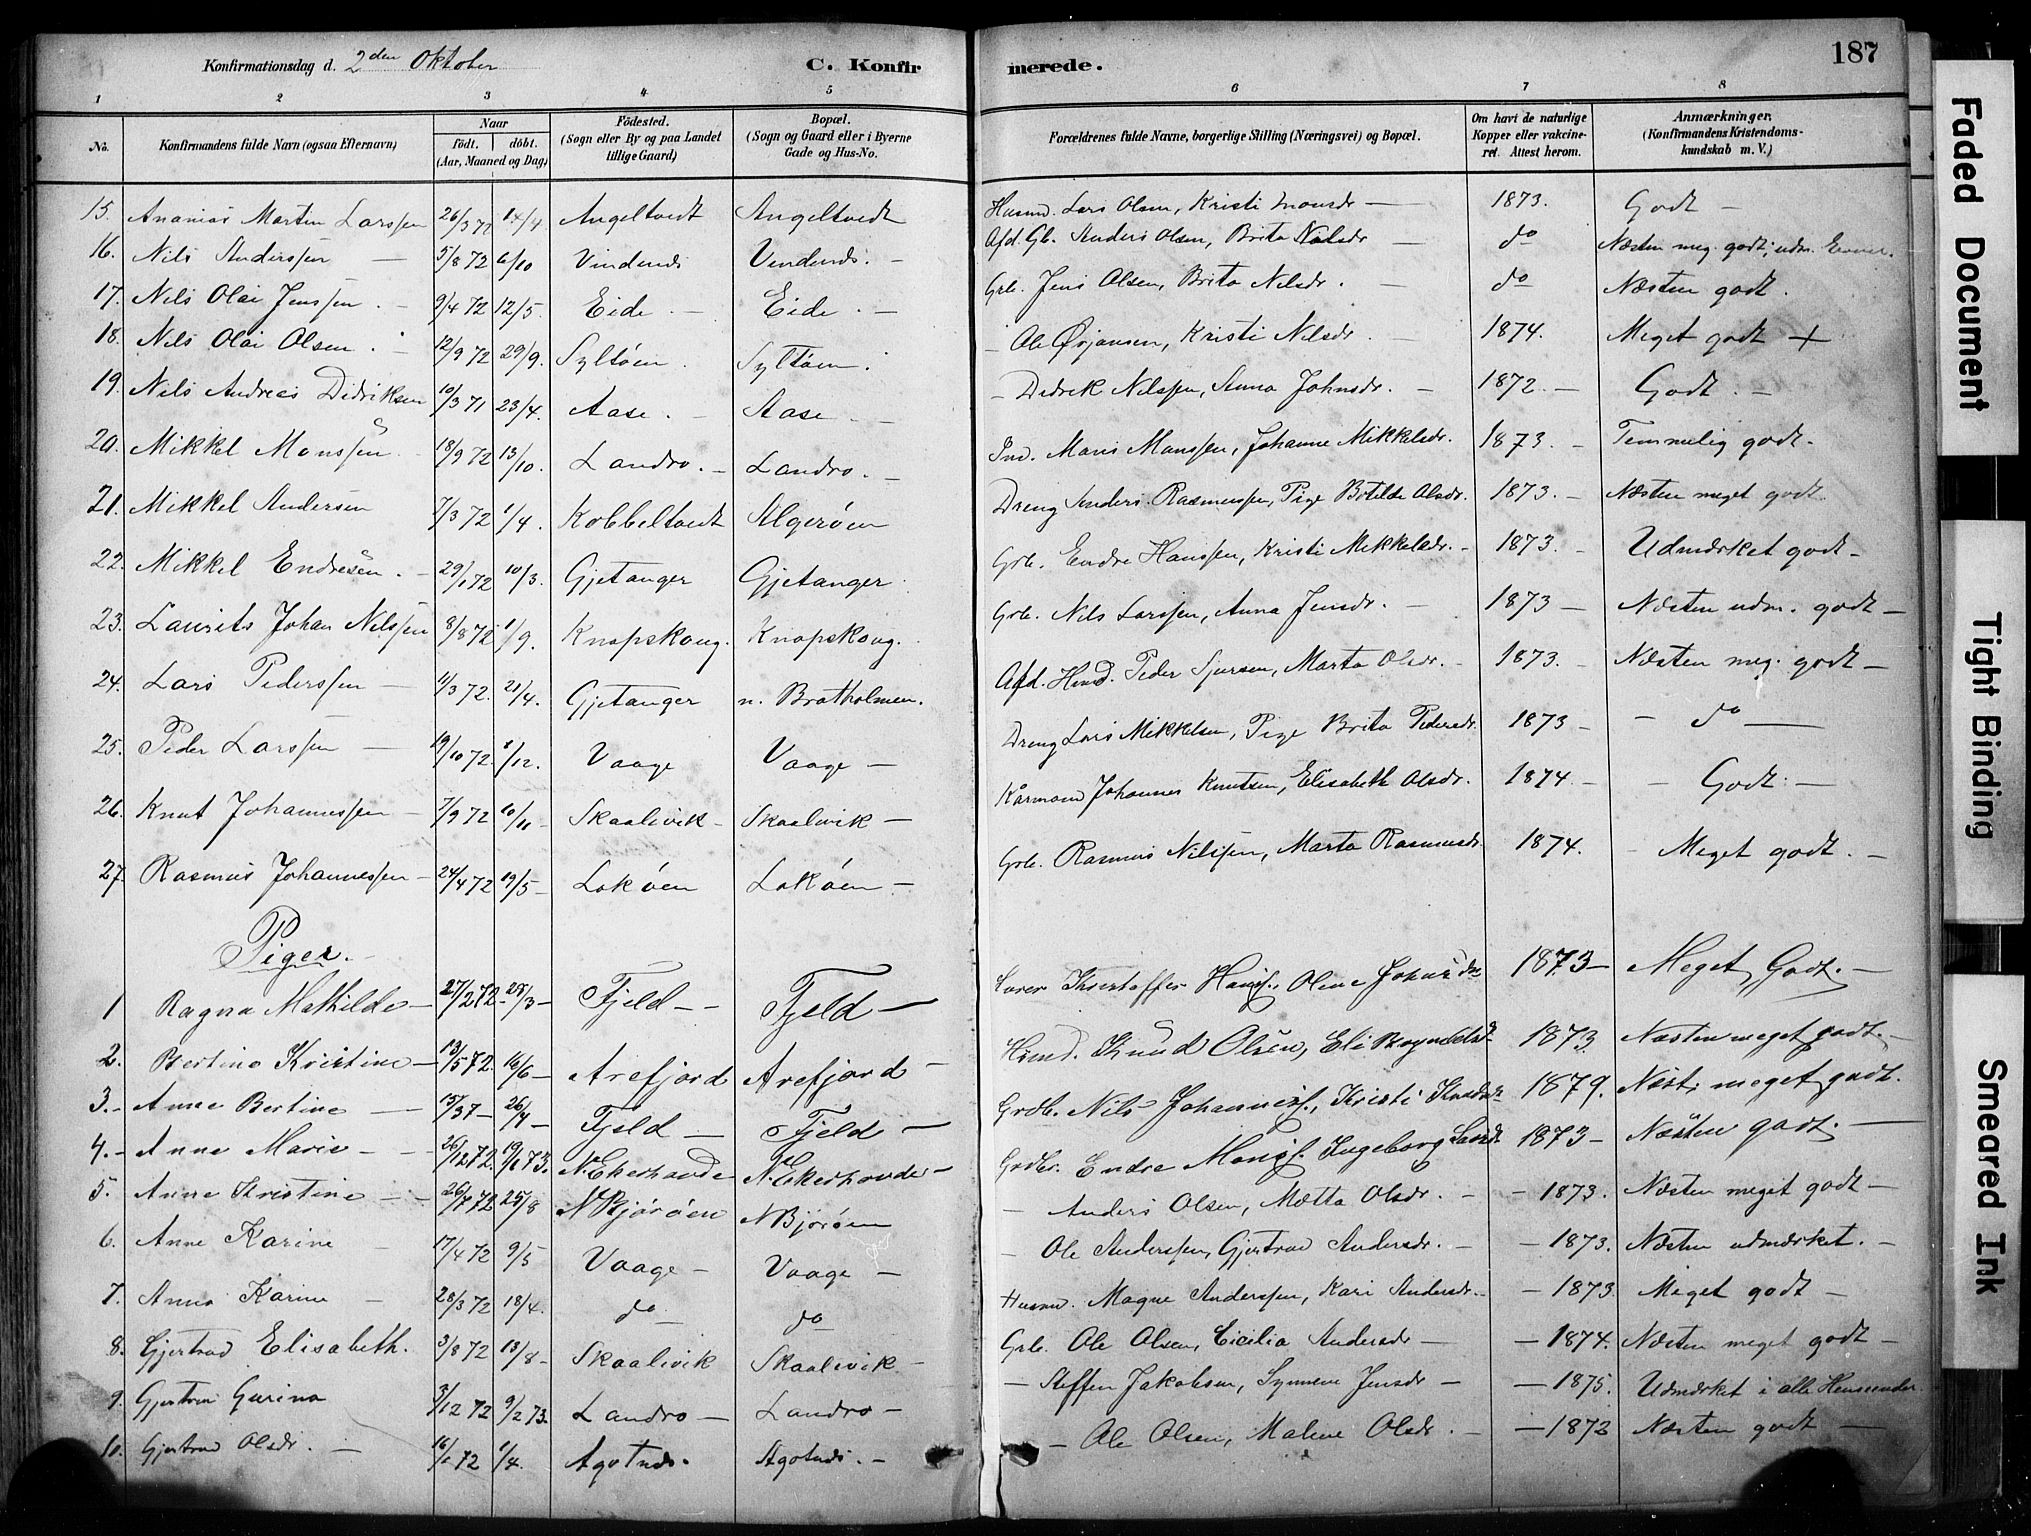 Konfirmationsdag d. 2den Oktober C. Konfirmerede. 187
1 2 3 4 5 6 7 8
No. Konfirmandens fulde Navn (ogsaa Efternavn) Naar født. døbt. (Aar, Maaned og Dag) Fødested. (Sogn eller By og paa Landet tillige Gaard) Bopæl. (Sogn og Gaard eller i Byerne Gade og Hus-No. Forældrenes fulde Navne, borgerlige Stilling (Næringsvei) og Bopæl. Om havt de naturlige Kopper eller vakcineret. Attest herom. Anmærkninger. (Konfirmandens Kristendomskundskab m. V.)
15. Ananias Marten Larssen 26/3 72 14/4 Angeltvedt Angeltvedt Husmd. Lars Olsen, Kristi Monsdr — 1873. Godt —
16. Nils Anderssen — 5/8 72 6/10 Vindenæs Vindenæs. — Afd. Gb. Anders Olsen, Brita Nilsdr — do Næsten meg. godt; udm. Evner.
17. Nils Olai Jenssen. — 9/4 72 12/5. Eide. — Eide. — Grb. Jens Olsen, Brita Nilsdr. — do Næsten godt.
18. Nils Olai Olsen. 12/9 72 29/9. Syltøen. Syltøen. — Ole Ørjansen, Kristi Nilsdr. 1874. Meget godt +
19. Nils Andreas Didriksen 10/3 71 23/4. Aase. — Aase — — Didrik Nilssen, Anna Johnsdr. — 1872. — Godt. —
20. Mikkel Monssen 18/9 72 13/10. Landro. — Landro. — Ind. Mons Monssen, Johanne Mikkelsdr. 1873. — Temmelig godt.
21. Mikkel Andersen 7/3 72 1/4. Kobbeltvedt Algerøen Dreng Anders Rasmussen, Pige Botilde Olsdr. 1873. — Næsten meget godt
22. Mikkel Endresen. — 29/1 72 10/3. Gjetanger Gjetanger Grb. Endre Hanssen, Kristi Mikkelsdr. — 1873. — Udmærket godt —
23. Laurits Johan Nilssen 8/8 72 1/9. Knapskoug. Knapskoug. Grb. Nils Larssen, Anna Jensdr. — 1873 — Næsten udm. godt —
24. Lars Pederssen — 11/3 72. 21/4. Gjetanger n. Bratholmen. Afd. Hmd. Peder Sjursen, Marta Olsdr. — 1873. — Næsten meg. godt —
25. Peder Larssen — 19/10 72. 8/12. Vaage Vaage — Dreng Lars Mikkelsen, Pige Brita Pedersdr. 1873 — — do —
26. Knut Johannessen — 7/9 72 10/11 — Skaalevik — Skaalevik — Kårmand Johannes Knutsen, Elisabeth Olsdr. 1874. — — Godt —
27. Rasmus Johannessen — 24/4 72 19/5 — Lokøen Lokøen — Grb. Rasmus Nilssen, Marta Rasmusdr. 1874. — Meget godt. —
Piger.
1 Ragna Mathilde — 27/2 72. 28/3 — Fjeld — Fjeld — Lærer Kristoffer Hansf., Oline Johnsdr 1873 — Meget Godt. —
2. Bertine Kristine — 13/5 72. 16/6 — Arefjord Arefjord — Hmd. Knud Olsen, Eli 1873. Næsten meget godt. —
3. — Anne Bertine — 26/4 — Fjeld — Fjeld — Grdb. Nils Johannesf., Kristi Knudsdr 1879. Næst. meget godt.
4. — Anne Marie — 26/12 72. 19/1 73. N. Ekerhovde N. Ekerhovde — Grdbr. Endre Monsf. Ingeborg Larsd. 1873 — Næsten godt. —
5. Anne Kristine — 26/7 72 25/8 N Bjørøen N Bjørøen — Anders Olsen, Mætta Olsdr. — — 1873. Næsten meget godt —
6. Anne Karine — 17/4 72 9/5 Vaage — Vaage — — Ole Anderssen, Gjertrud Andersdr. — — 1873. Næsten udmærket. —
7. Anna Karine — 28/3 72 18/4. do do Husmd. Magne Anderssen, Kari Andersdr. — 1873. Meget godt —
8. Gjertrud Elisabeth. 3/8 72 18/8 — Skaalevik Skaalevik — Grb. Ole Olsen, Cicilia Andersdr — — 1874. Næsten meget godt —
9. Gjertrud Gurina 3/12 72 9/2 73. Landro — Landro — — Steffen Jakobsen, Synneve Jensdr — — 1875. Udmærket i alle Henseender
10. Gjertrud Olsdr. — 16/1 72 1/4. Agotnæs. Agotnæs. — — Ole Olsen, Malene Olsdr. — — 1873 Næsten godt —
Faded Document
Tight Binding
Smeared Ink